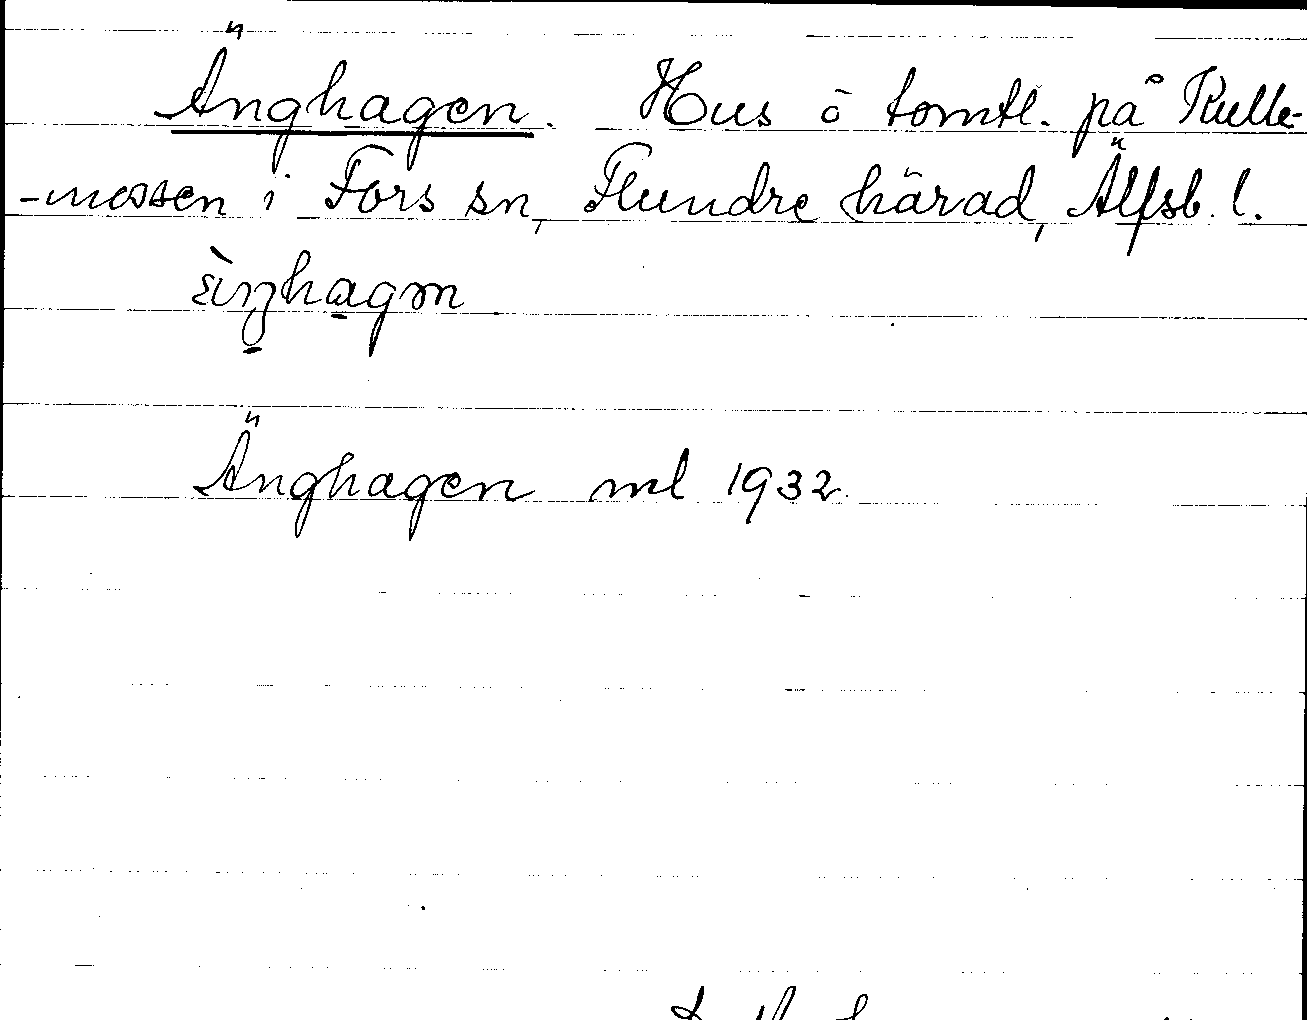 Änghagen. Hus ō tomtl. på Kulle-
-mossen i Fors sn, Flundre härad, Älfsb. l.
Änghagen ml 1932